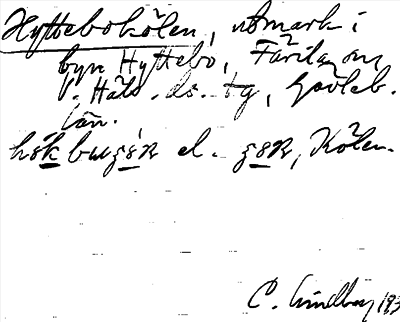 Hyttebokölen, utmark i
byn Hyttebo, Färila sn
V. Häls. ds. tg, Gävleb.
län.
el. Kölen.
C. Lindberg 193